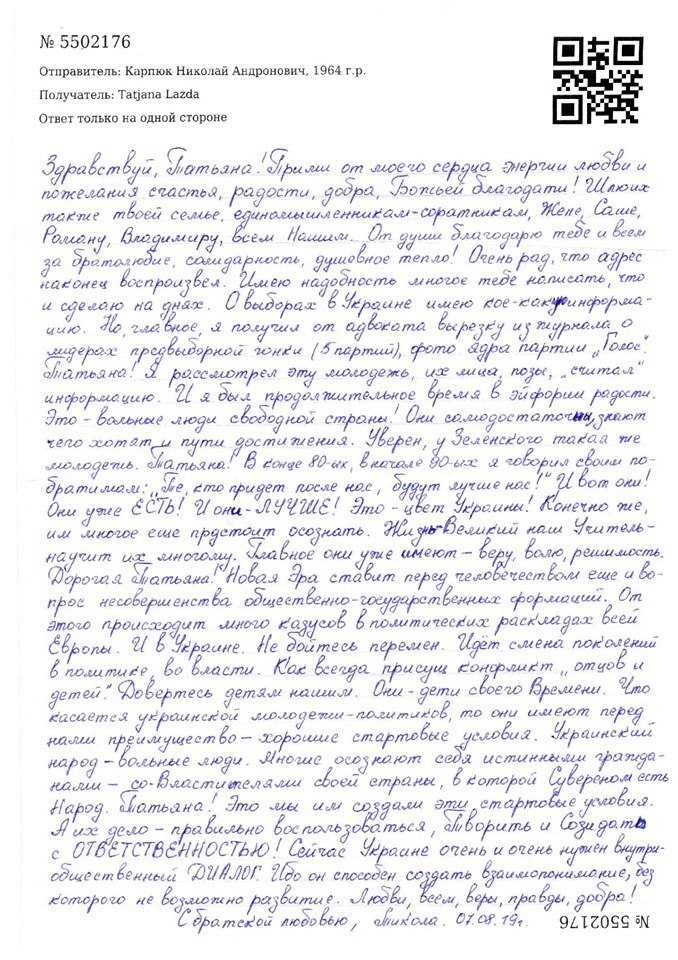 № 5502176
Отправитель: Карпюк Николай Андронович, 1964 г.р.
Получатель: Tatjana Lazda
Ответ только на одной стороне
Здравствуй, Татьяна! Прими от моего сердца энергии любви и
пожелания счастья, радости, добра, Божьей благодати! Шлю их
также твоей семье, единомышленникам-соратникам, Жене, Саше,
Роману, Владимиру, всем Нашим. От души благодарю тебе и всем
за братолюбие, солидарность, душевное тепло! Очень рад, что адрес
наконец воспроизвел. Имею надобность многое тебе написать, что
и сделаю на днях. О выборах в Украине имею кое-какую информа-
цию. Но, главное, я получил от адвоката вырезку из журнала о
лидерах предвыборной гонки (5 партий), фото ядра партии „Голос".
Татьяна! Я рассмотрел эту молодежь, их лица, позы, „считал"
информацию. И я был продолжительное время в эйфории радости.
Это - вольные люди свободной страны! Они самодостаточны, знают
чего хотят и пути достижения. Уверен, у Зеленского такая же
молодежь. Татьяна! В конце 80-ых, в начале 90-ых я говорил своим по-
братимам: „Те, кто придет после нас, будут лучше нас!" И вот они!
Они уже ЕСТЬ! И они - ЛУЧШЕ! Это - цвет Украины! Конечно же,
им многое еще прдстоит осознать. Жизнь - Великий наш Учитель -
научит их многому. Главное они уже имеют - веру, волю, решимость.
Дорогая Татьяна! Новая Эра ставит перед человечеством еще и во-
прос несовершенства общественно-государственных формаций. От
этого происходит много казусов в политических раскладах всей
Европы. И в Украине. Не бойтесь перемен. Идёт смена поколений
в политике, во власти. Как всегда присущ конфликт „отцов и
детей". Довертесь детям нашим. Они - дети своего Времени. Что
касается украинской молодежи-политиков, то они имеют перед
нами преимущество - хорошие стартовые условия. Украинский
народ - вольные люди. Многие осознают себя истинными гражда-
нами - со-Властителями своей страны, в которой Сувереном есть
Народ. Татьяна! Это мы им создали эти стартовые условия.
А их дело - правильно воспользоваться, Творить и Созидать
с ОТВЕТСТВЕННОСТЬЮ! Сейчас Украине очень и очень нужен внутри-
общественный ДИАЛОГ. Ибо он способен создать взаимопонимание, без
которого не возможно развитие. Любви, всем, веры, правды, добра!
С братской любовью, Микола. 07.08.19г.
№ 5502176